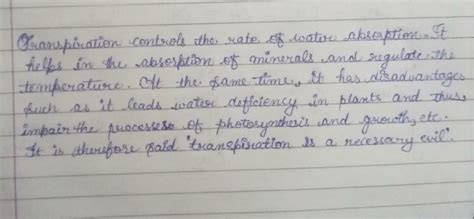 Transpiration controls the rate of water absorption. It
helps in the absorption of minerals and regulate the
temperature. At the same time, it has disadvantages
such as it leads water deficiency in plants and thus,
impair the processess of photosynthesis and growth, etc.
It is therefore said 'transpiration is a necessary evil'.